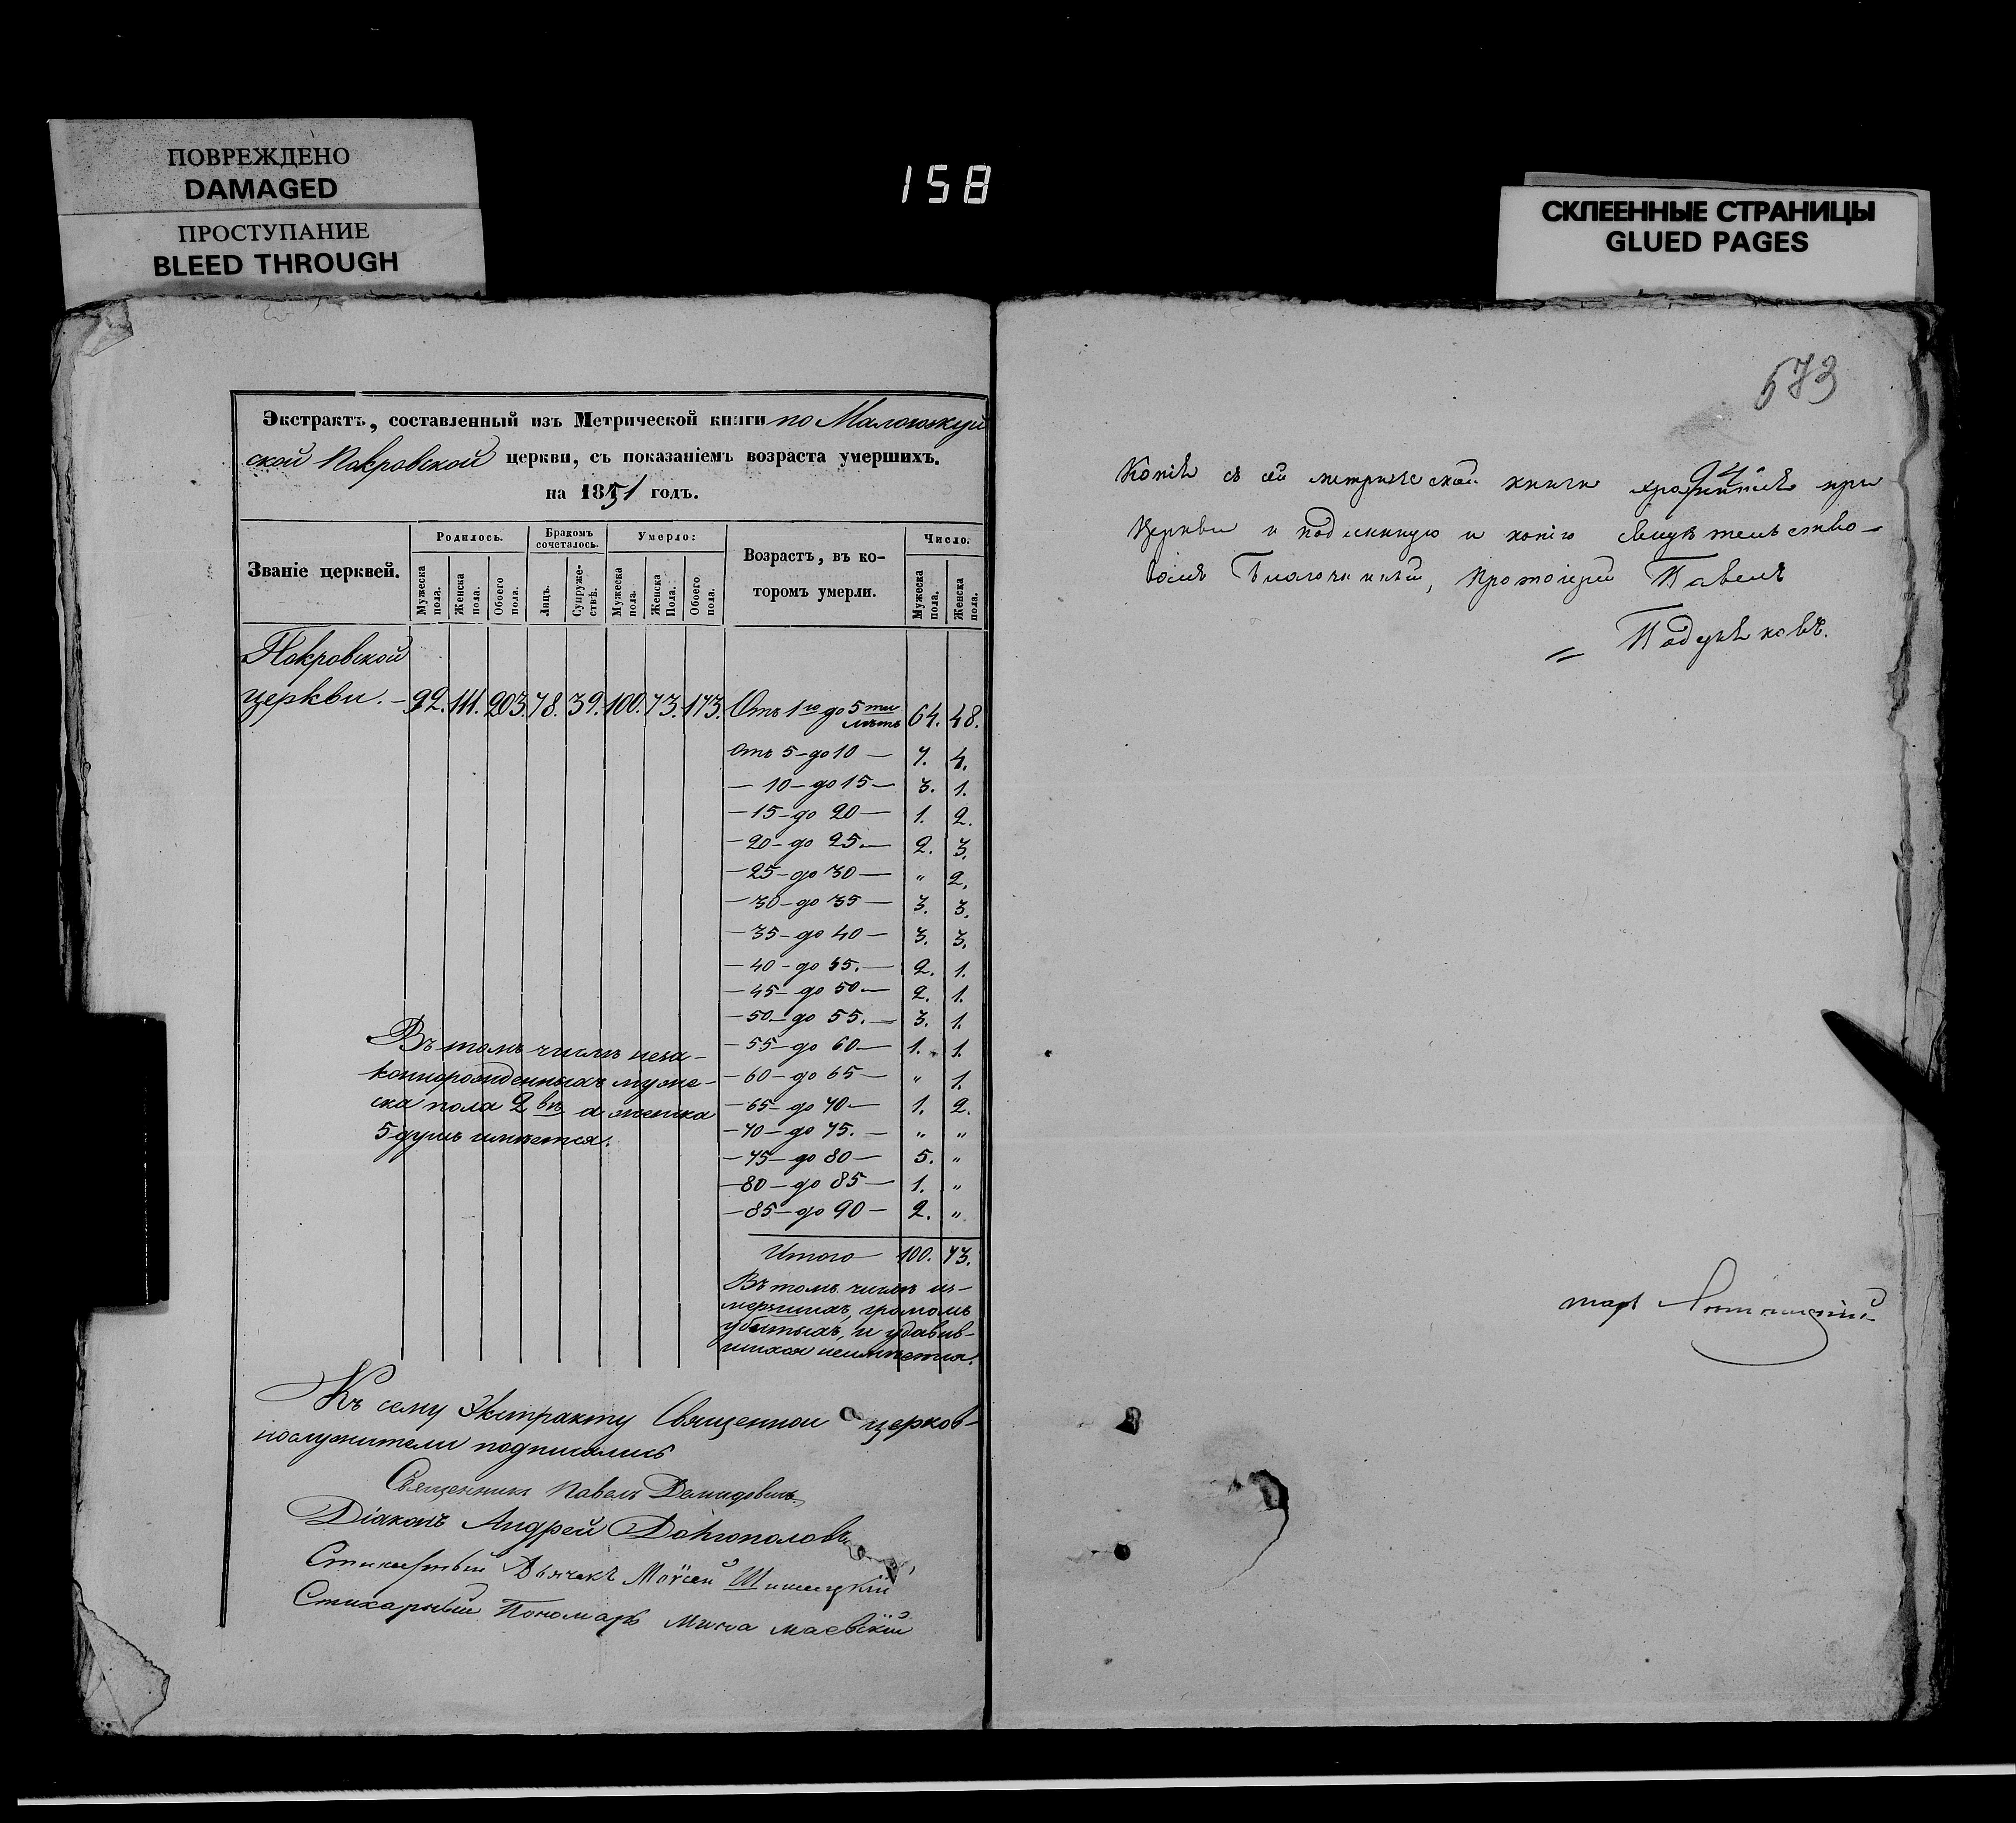 ПОВРЕЖДЕНО
DAMAGED
ПРОСТУПАНИЕ
BLEED THROUGH
158
СКЛЕЕННЫЕ СТРАНИЦЫ
GLUED PAGES
Экстрактъ, составленный изъ Метрической книги по
ской Покровской церкви, съ показаніемъ возраста умершихъ.
на 1851 годъ.
Званіе церквей.
Родилось.
Мужеска пола.
Женска пола.
Обоего пола.
Бракомъ сочеталось.
Лицъ.
Супружествѣ.
Умерло:
Мужеска пола.
Женска Пола.
Обоего пола.
Возрастъ, въ ко-
торомъ умерли.
Число.
Мужеска пола.
Женска пола.
Покровской
церкви. – 92. 111. 203. 78. 39. 100. 73. 173. Отъ 1го до 5ти лѣтъ 64. 48.
Отъ 5 – до 10 — 7. 4.
— 10 – до 15 — 3. 1.
— 15 – до 20 — 1. 2.
— 20 – до 25 — 2. 3.
— 25 – до 30 — „ 2.
— 30 – до 35 — 3. 3.
— 35 – до 40 — 3. 3.
— 40 – до 45. — 2. 1.
— 45 – до 50 — 2. 1.
— 50 – до 55. — 3. 1.
— 55 – до 60 — 1. 1.
— 60 – до 65 — „ 1.
— 65 – до 70 — 1. 2.
— 70 – до 75. — „ „
— 75 – до 80 — 5. „
— 80 – до 85 — 1. „
— 85 – до 90 — 2. „
Итого 100. 73.
Въ томъ числѣ неза-
коннорожденныхъ муже-
ска пола 2вѣ а женска
5 душъ имѣется.
Въ томъ числѣ
громомъ
убитыхъ, и удавив-
шихся неимѣется.
Къ сему Экстракту Священно и церков-
нослужители подписались
Священникъ Павелъ Демидовичъ
Діаконъ Андрей
Стихарный Дьячекъ Моѵсей Шишацкій
Стихарный Пономарь Мина Маевскій
573
Копія съ сей метрической книги хранится при
Церкви и подлинную и копію свидѣтельство-
валъ Благочинный, Протоіерей Павелъ